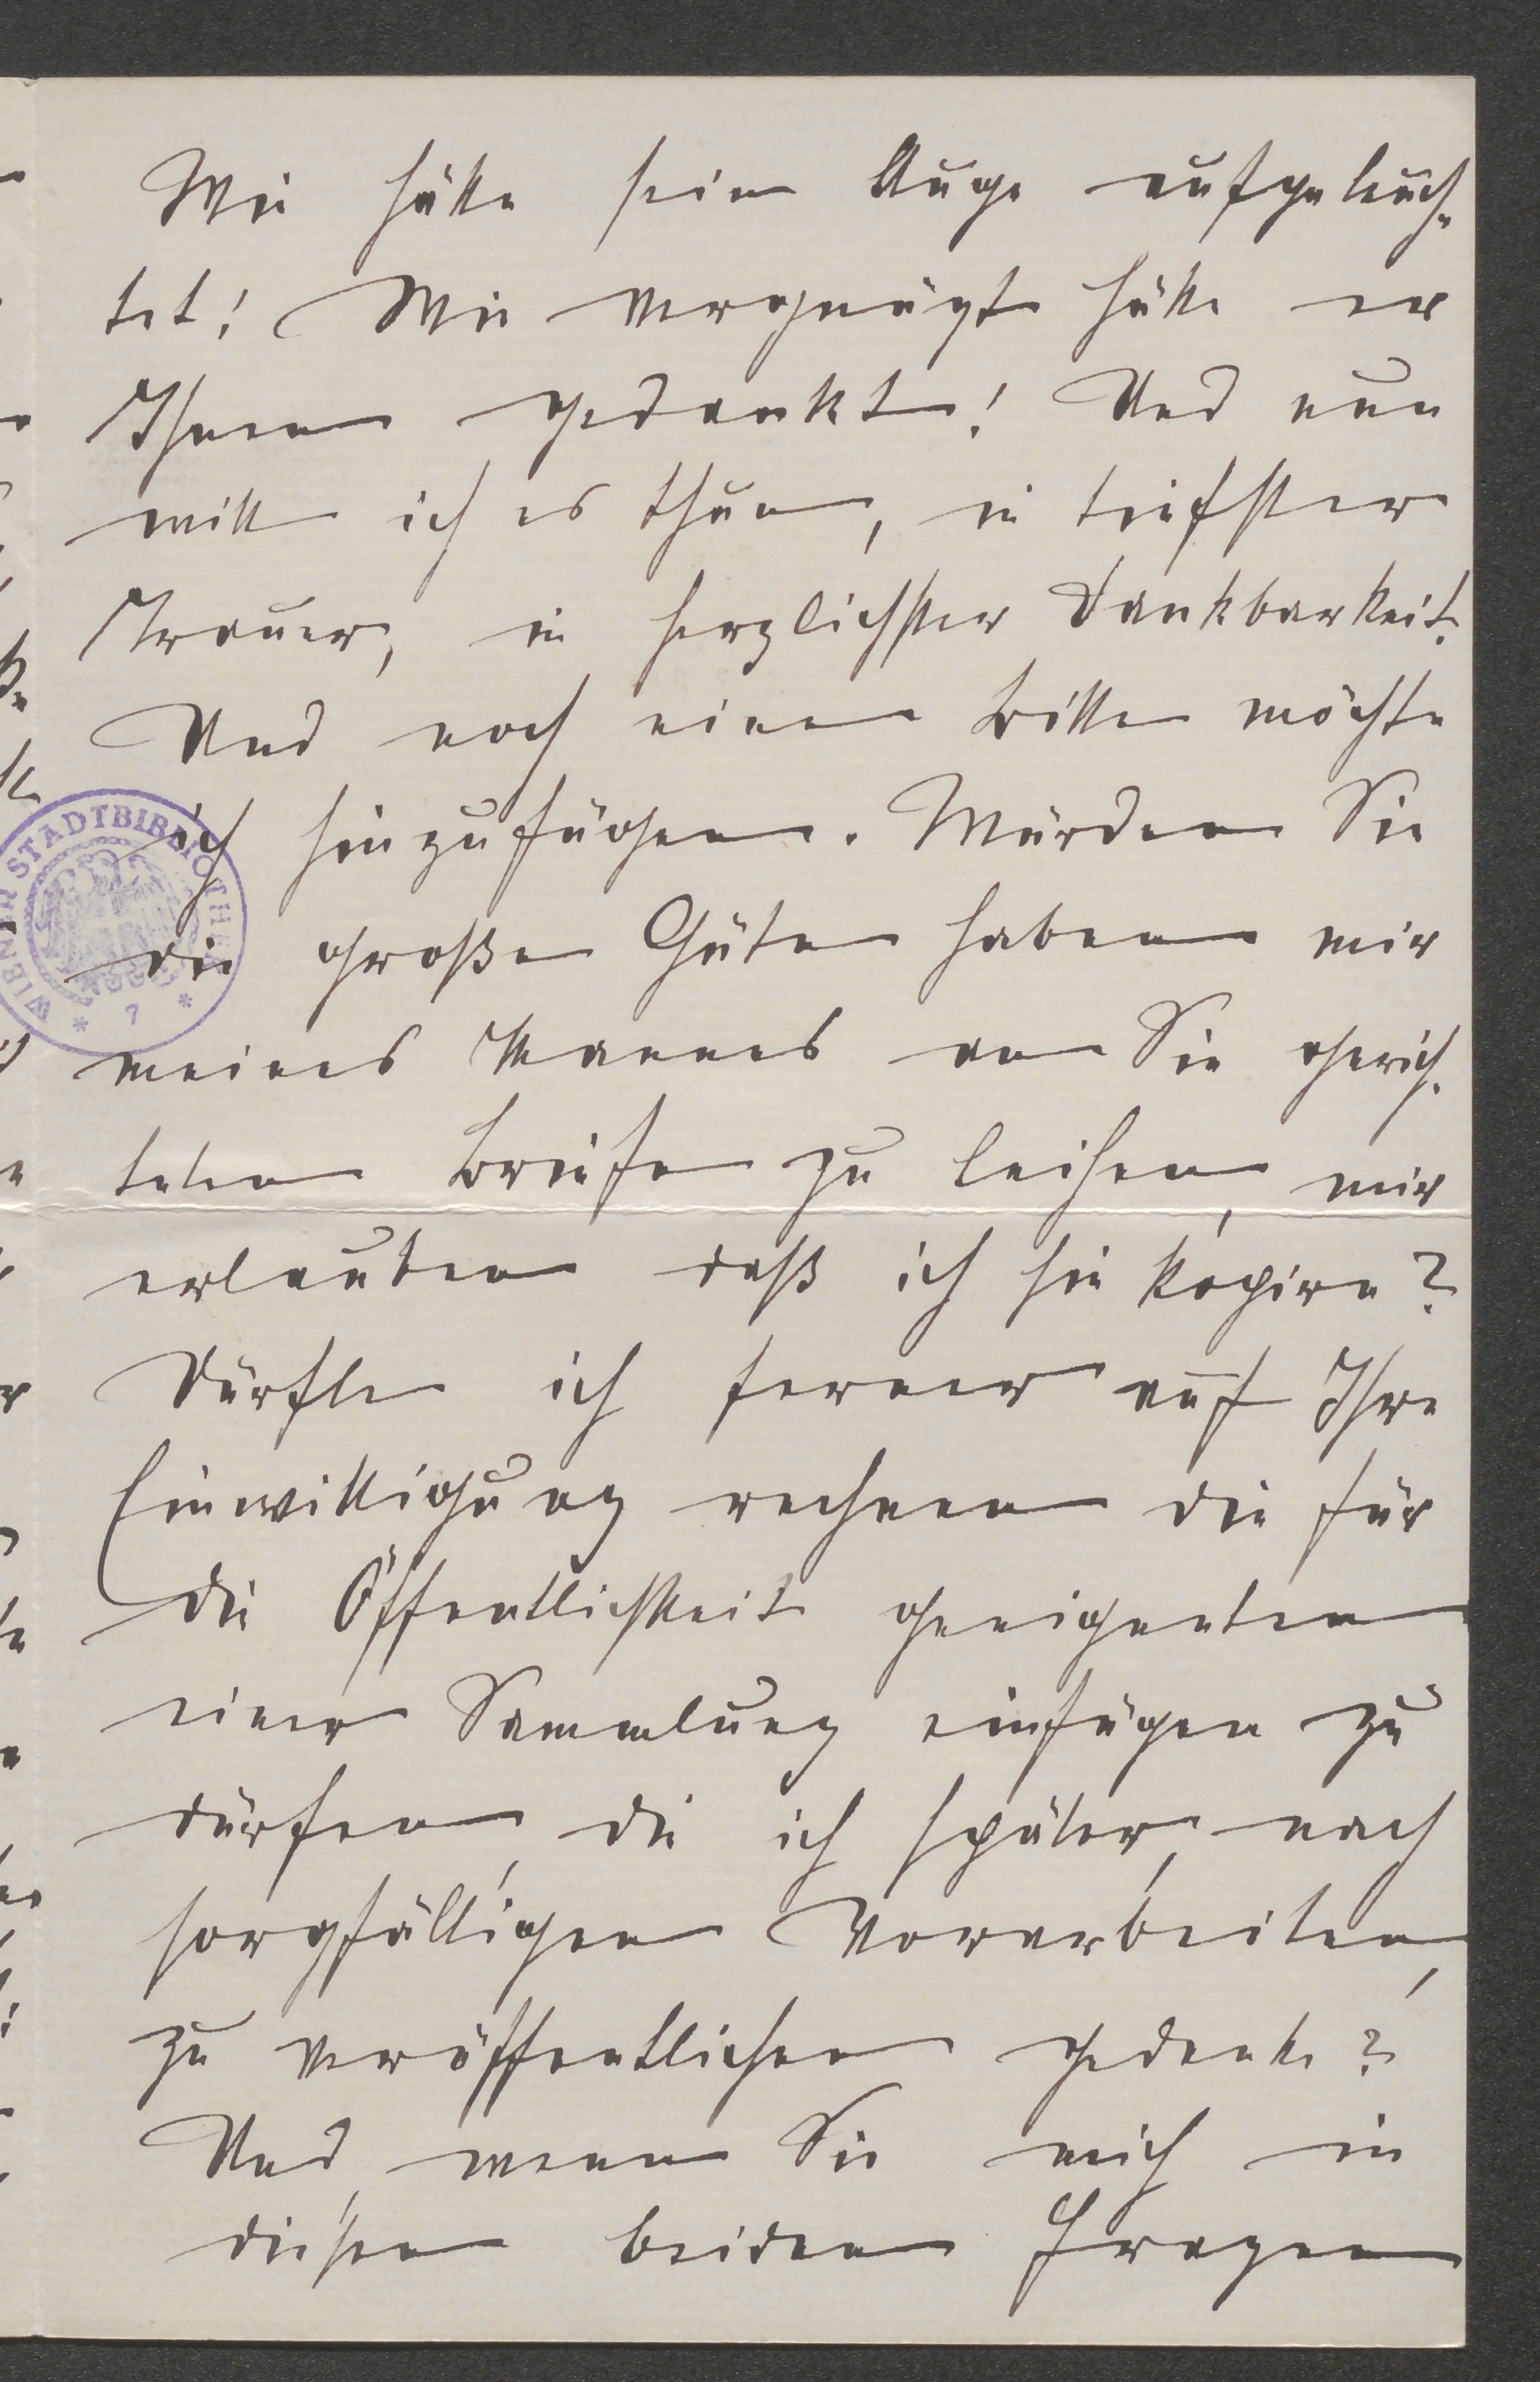 Wie hätte sein Auge aufgeleuch-
tet! Wie vergnügt hätte er
Ihnen gedankt! Und nun
will ich es thun, in tiefster
Trauer, in herzlichster Dankbarkeit.
Und noch eine Bitte möchte
ich hinzufügen. Würden Sie
die große Güte haben mir
meines Mannes an Sie gerich-
teten Briefe zu leihen, mir
erlauben daß ich sie kopire?
Dürfte ich ferner auf Ihre
Einwilligung rechnen die für
die Öffentlichkeit geeigneten
einer Sammlung einfügen zu
dürfen, die ich später, nach
sorgfältigen Vorarbeiten,
zu veröffentlichen gedenke?
Und, wenn Sie mich in
diesen beiden Fragen
WIENER STADTBIBLIOTHEK
* 7 *